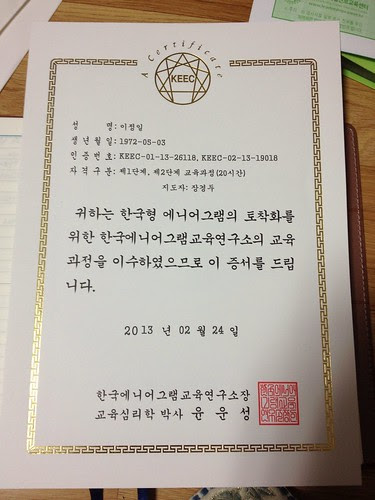 A Certificate
KEEC
성 명: 이정일
생년월일: 1972-05-03
인증번호: KEEC-01-13-26118, KEEC-02-13-19018
자격구분: 제1단계, 제2단계 교육과정(20시간)
지도자: 장경두
귀하는 한국형 에니어그램의 토착화를
위한 한국에니어그램교육연구소의 교육
과정을 이수하였으므로 이 증서를 드립
니다.
2013 년 02 월 24 일
한국에니어그램교육연구소장
교육심리학 박사 윤운성